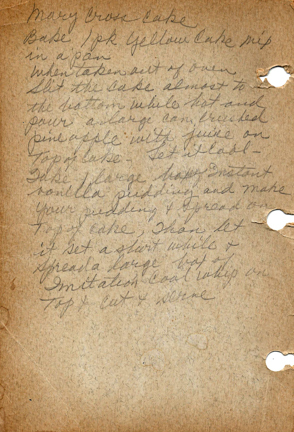 Mary Cross Cake
Bake 1 pk Yellow Cake mix
in a pan
when taken out of oven
Slit the cake almost to
the bottom while hot and
pour a large can Crushed
pineapple with juice on
Top of cake. Let it Cool -
Take 1 large box Instant
vanilla pudding and make
your pudding & spread on
Top of cake, Then let
it set a short while &
spread a large box of
Imitation Cool whip on
Top & cut & serve